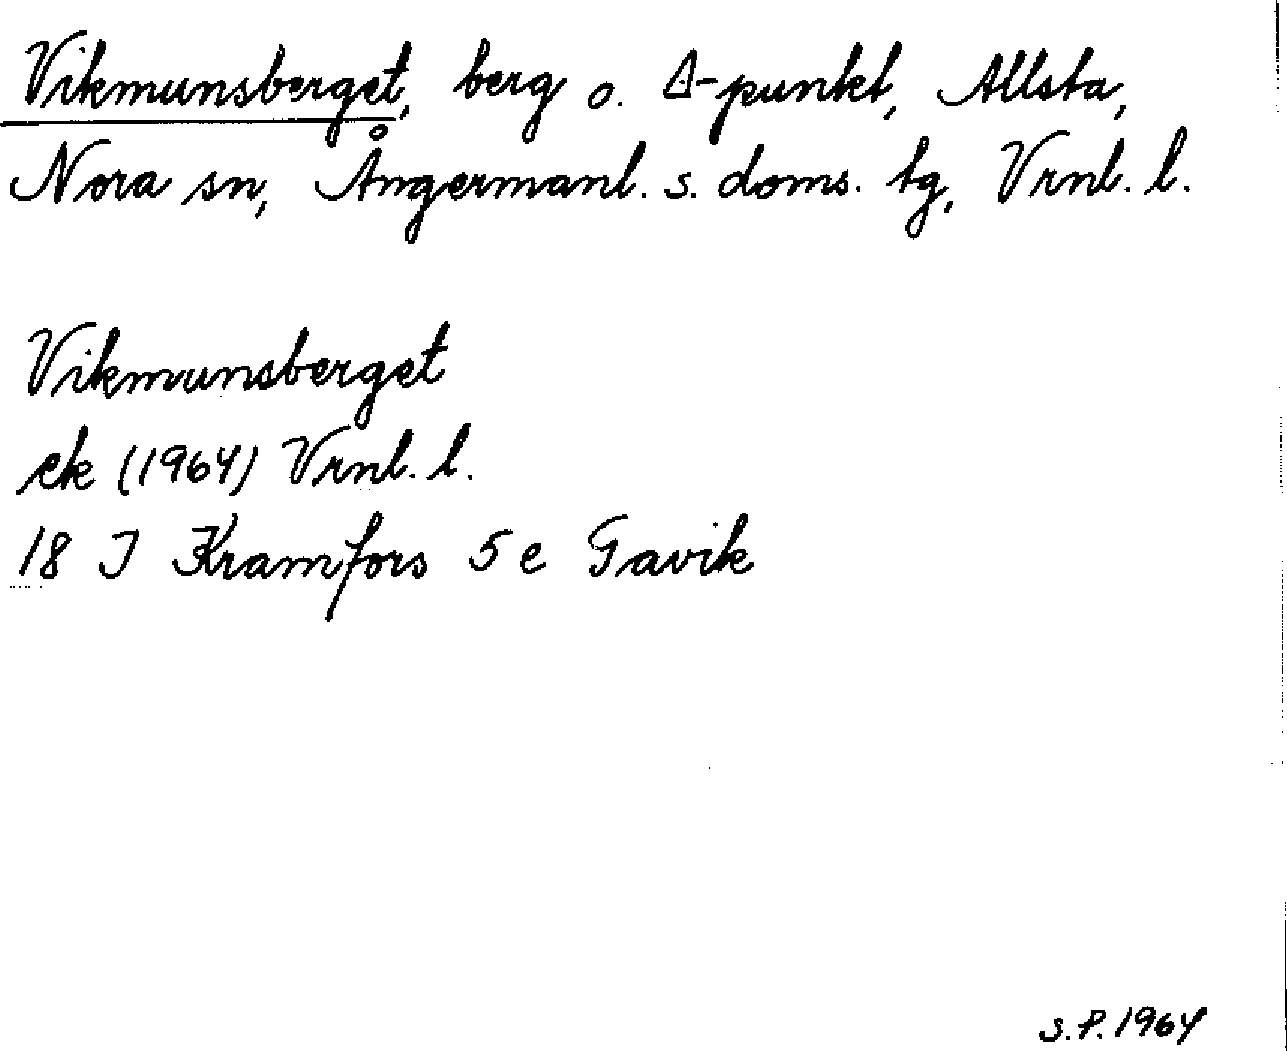 Vikmunsberget, berg o. Δ-punkt, Allsta,
Nora sn, Ångermanl. s. doms. tg, Vrnl. l.
Vikmunsberget
ek (1964) Vrnl. l.
18 I Kramfors 5 e Gavik
S.P. 1964